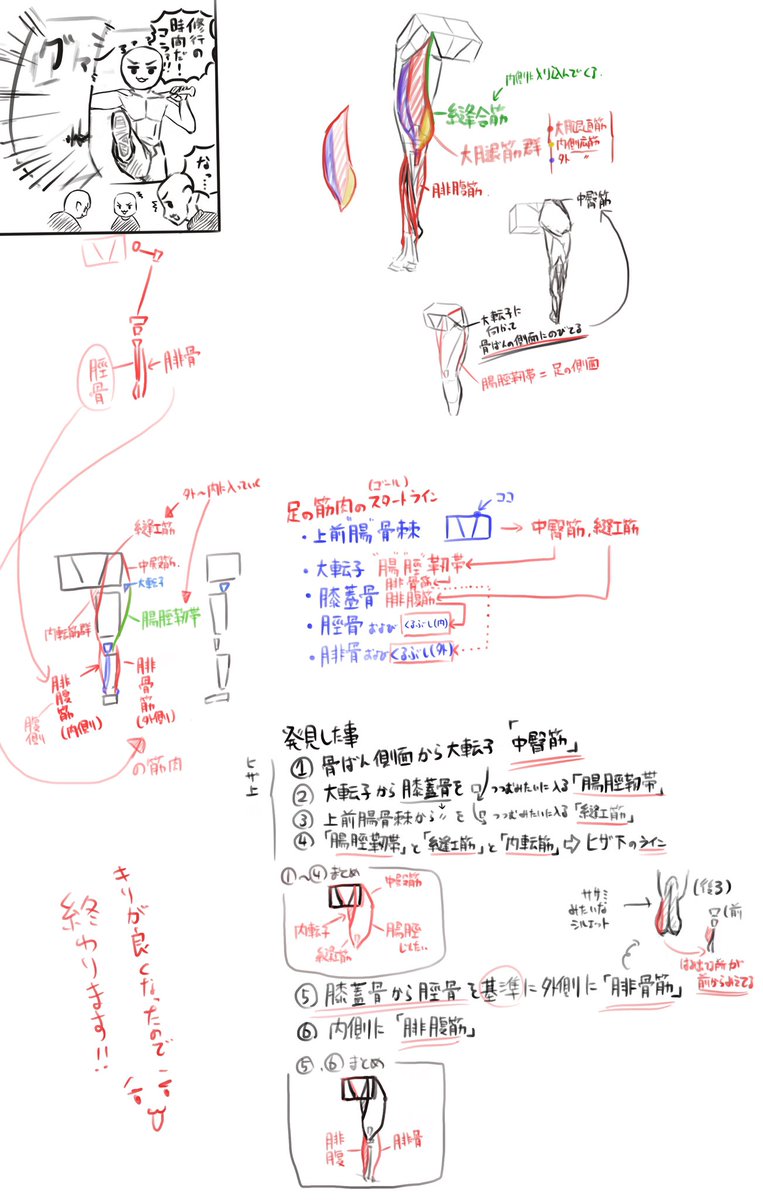 修行の
時間だ!
コラァ!!
グァシ
なっ…
内側に入り込んでくる
縫合筋
大腿筋群
大腿直筋
内側広筋
外 〃
腓腹筋
中臀筋
大転子に
向かって
骨ばんの側面にのびてる
腸脛靭帯=足の側面
脛骨
腓骨
外〜内に入っていく
縫工筋
中臀筋
大転子
腸脛靭帯
内転筋群
腓腹筋
(内側)
腓骨筋
(外側)
腹側
の筋肉
(ゴール)
足の筋肉のスタートライン
・上前"腸"骨棘
ココ
中臀筋、縫工筋
・大転子 "腸""脛"靭帯
腓骨筋
・膝蓋骨 腓腹筋
・脛骨 および くるぶし(内)
・腓骨 および くるぶし(外)
発見した事
ヒザ上
① 骨ばん側面から大転子「中臀筋」
② 大転子から膝蓋骨を つつむみたいに入る「腸脛靭帯」
③ 上前腸骨棘から〃を つつむみたいに入る「縫工筋」
④「腸脛靭帯」と「縫工筋」と「内転筋」⇨ヒザ下のライン
①〜④まとめ
中臀筋
内転子
縫工筋
腸脛
じんたい
ササミ
みたいな
シルエット
(後ろ)
(前
はみ出た所が
前からみえてる
⑤ 膝蓋骨から脛骨を基準に外側に「腓骨筋」
⑥ 内側に「腓腹筋」
⑤、⑥まとめ
腓腹
腓骨
キリが良くなったので
終わります!!